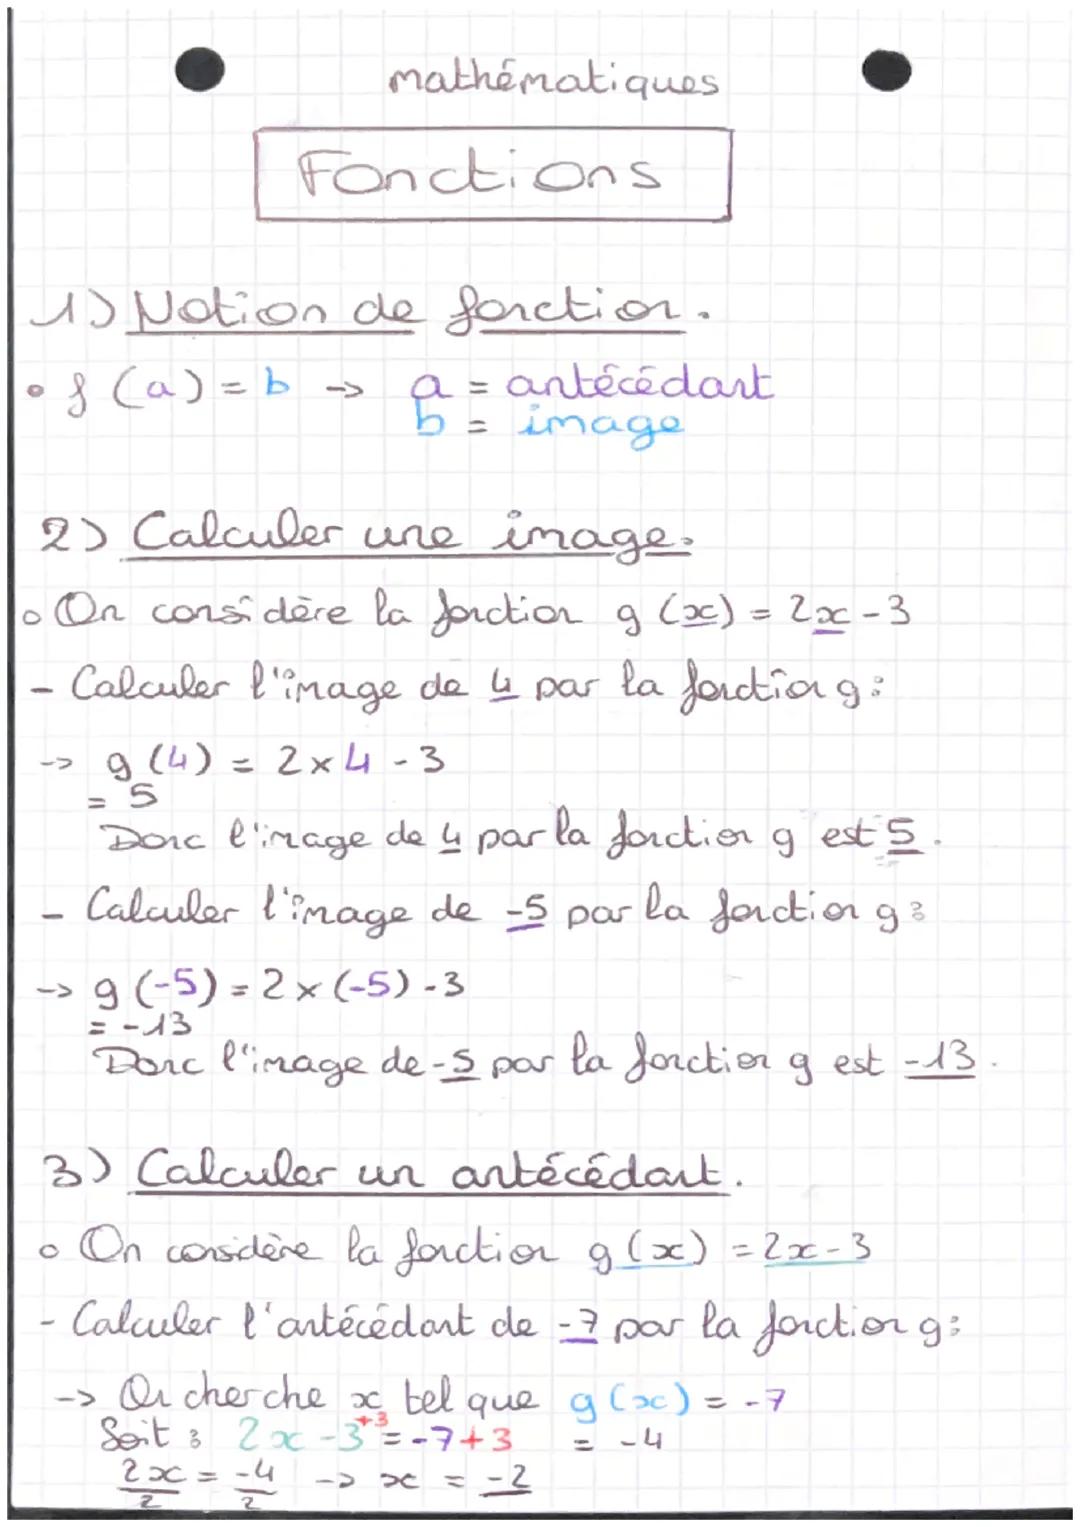 mathématiques
Fonctions
1) Notion de fonction.
• f (a) = b -> a = antécédant
b = image
2) Calculer une image.
• On considère la fonction g (x) = 2x - 3
- Calculer l'image de 4 par la fonction g :
-> g (4) = 2 x 4 - 3
= 5
Donc l'image de 4 par la fonction g est 5.
- Calculer l'image de -5 par la fonction g :
-> g (-5) = 2 x (-5) - 3
= -13
Donc l'image de -5 par la fonction g est -13.
3) Calculer un antécédant.
• On considère la fonction g (x) = 2x - 3
- Calculer l'antécédant de -7 par la fonction g :
-> On cherche x tel que g (x) = -7
Soit : 2x - 3 +3 = -7 + 3 = -4
2x/2 = -4/2 -> x = -2